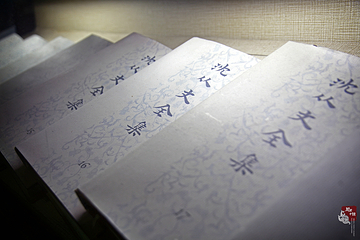 沈从文全集
15
沈从文全集
16
沈从文全集
17